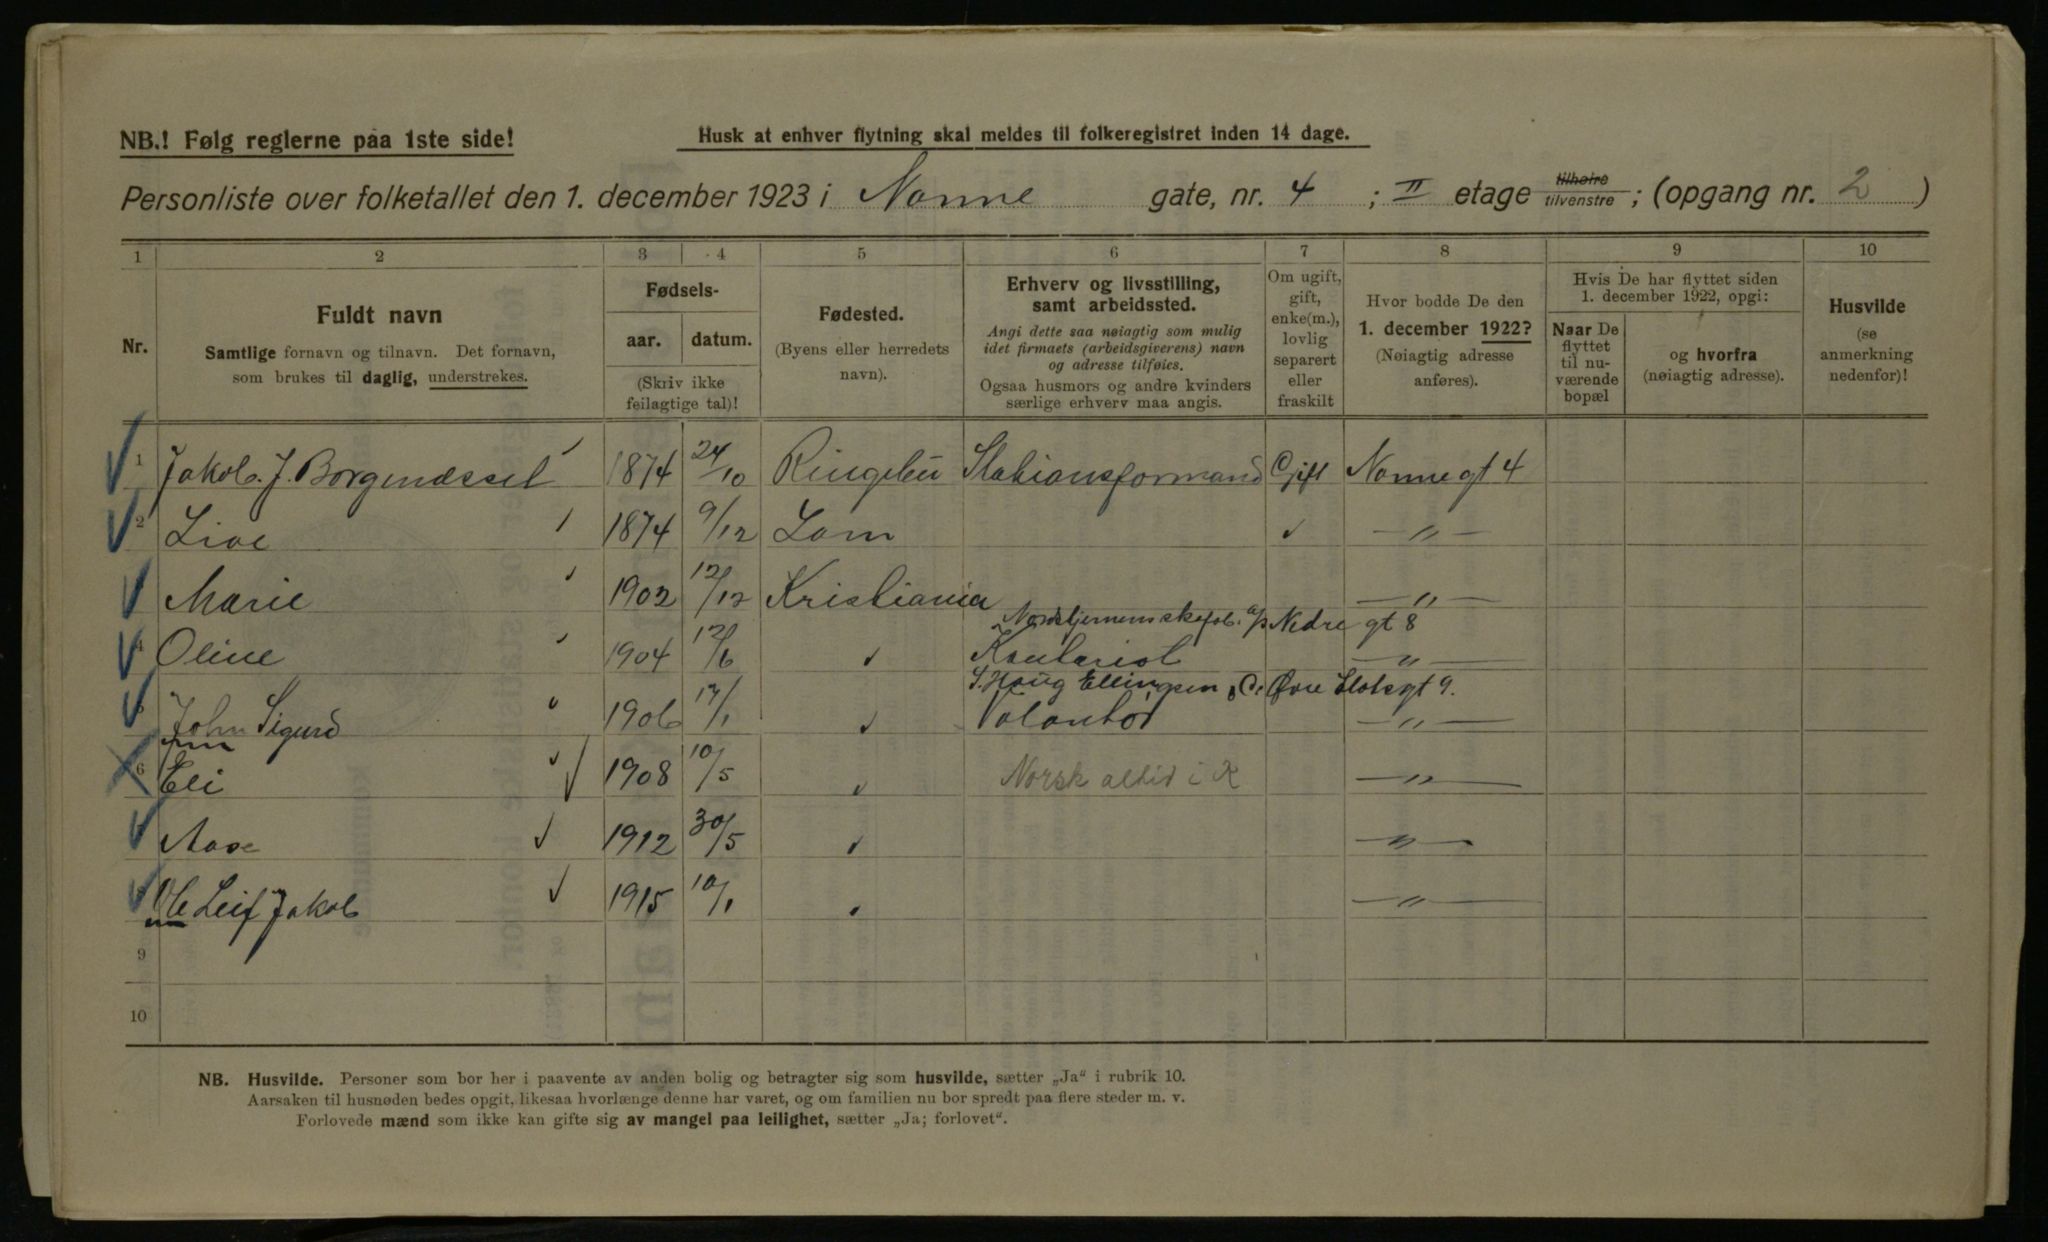 NB.! Følg reglerne paa 1ste side!
Husk at enhver flytning skal meldes til folkeregistret inden 14 dage.
Personliste over folketallet den 1. december 1923 i Nonne gate, nr. 4 ; II etage tilhøire tilvenstre ; (opgang nr. 2 )
1 2 3 4 5 6 7 8 9 10
Nr.
Fuldt navn
Samtlige fornavn og tilnavn. Det fornavn,
som brukes til daglig, understrekes.
Fødsels-
aar. datum.
(Skriv ikke
feilagtige tal)!
Fødested.
(Byens eller herredets
navn).
Erhverv og livsstilling,
samt arbeidssted.
Angi dette saa nøiagtig som mulig
idet firmaets (arbeidsgiverens) navn
og adresse tilføies.
Ogsaa husmors og andre kvinders
særlige erhverv maa angis.
Om ugift,
gift,
enke(m.),
lovlig
separert
eller
fraskilt
Hvor bodde De den
1. december 1922?
(Nøiagtig adresse
anføres).
Hvis De har flyttet siden
1. december 1922, opgi:
Naar De
flyttet
til nu-
værende
bopæl
og hvorfra
(nøiagtig adresse).
Husvilde
(se
anmerkning
nedenfor)!
1 Jakob. J. Borgenæsset 1874 24/10 Ringebu Stationsformand Gift Nonnegt 4
2 Live 1874 9/12 Lom — " —
Marie 1902 12/12 Kristiania — " —
Nedre gt 8
4 Oline 1904 12/6 Kontorist — " —
S. Haug Ellingsen & Co Øvre Slotsgt 9.
John Sigurd 1906 17/1 Volontør — " —
6 Eli 1908 10/5 Norsk altid i K — " —
Aase 1912 30/5 — " —
Ole Leif Jakob 1915 10/1 — " —
9
10
NB. Husvilde. Personer som bor her i paavente av anden bolig og betragter sig som husvilde, sætter „Ja" i rubrik 10.
Aarsaken til husnøden bedes opgit, likesaa hvorlænge denne har varet, og om familien nu bor spredt paa flere steder m. v.
Forlovede mænd som ikke kan gifte sig av mangel paa leilighet, sætter „Ja; forlovet".